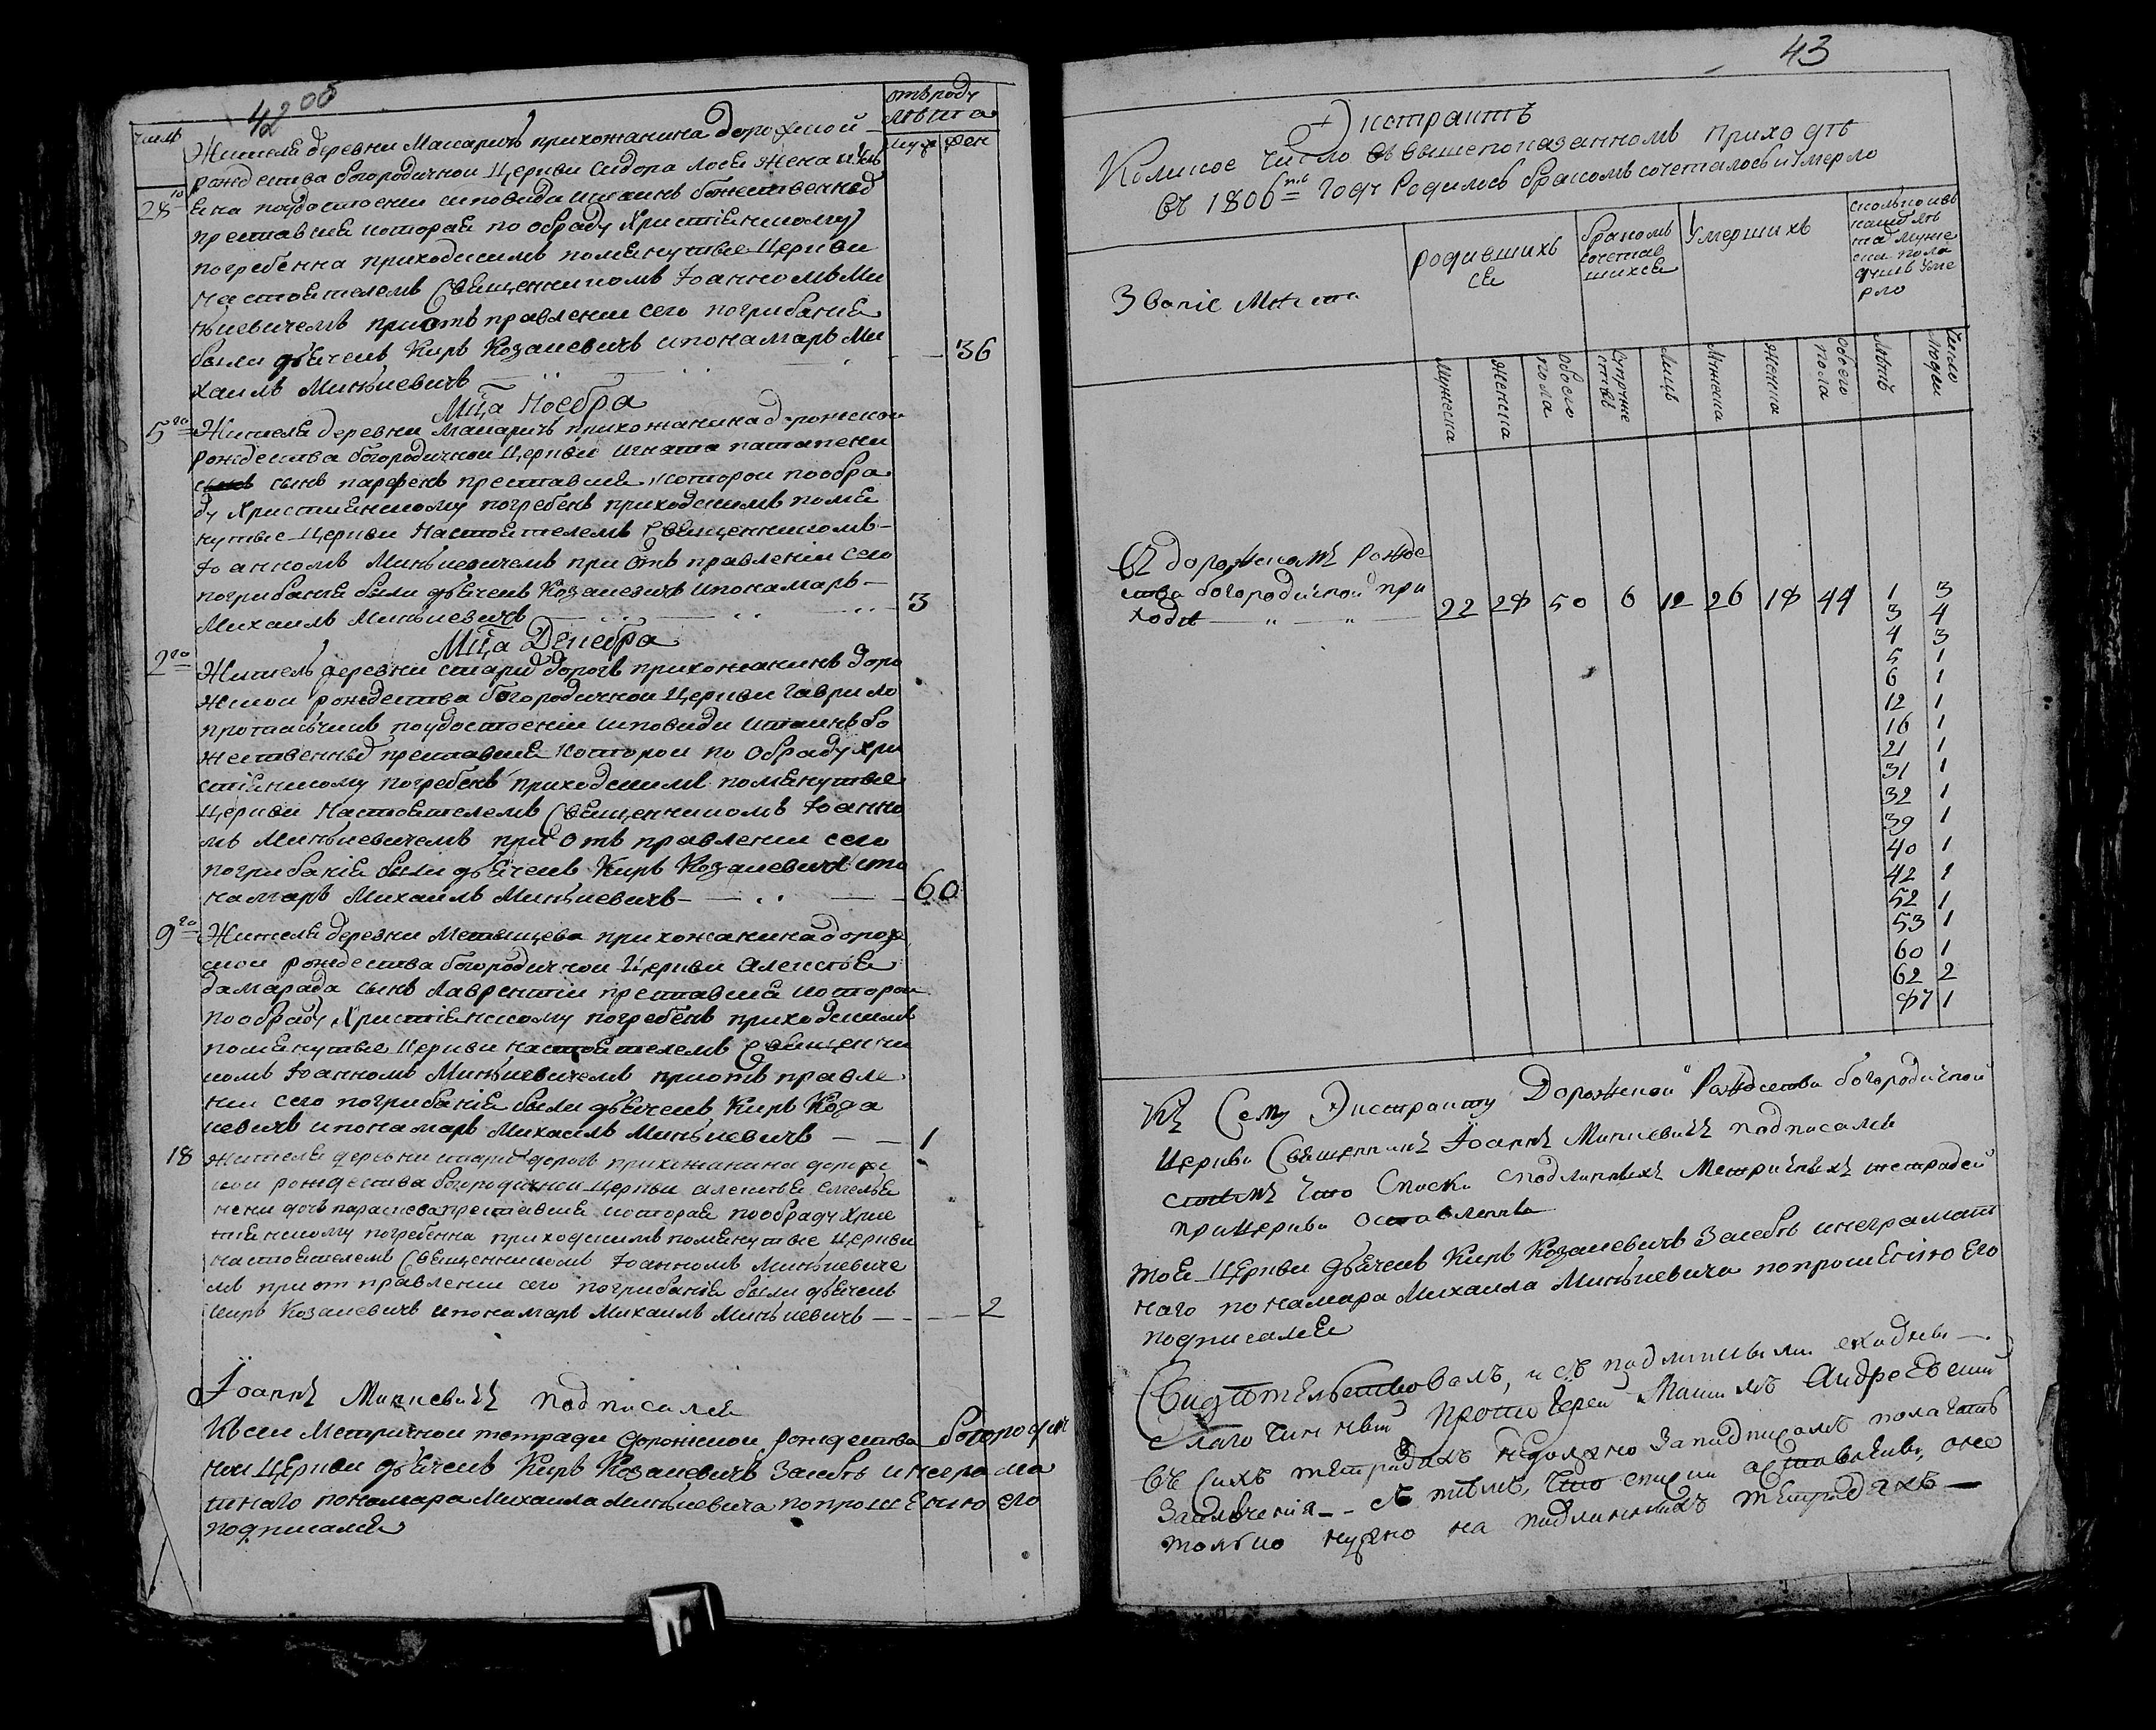 42 об
число
отъ роду
лѣта
муж жен
28го
Жителя деревни Макаричъ прихожанина дорожской
рождества богородичной церкви Сидора Лося жена
по удостоении исповеди и таинъ божественныхъ
преставися которая по обряду христіянскому
погребенна приходскимъ помянутые церкви
настоятелемъ священникомъ Іоанномъ Ми
нкевичемъ при отъправлении сего погрибания
были дьячекъ Киръ Козакевичъ и понамарь Ми
хаилъ Минкевичъ — 36
Мца Ноебра
5го Жителя деревни Макаричъ прихожанина дорожской
рождества богородичной церкви Игната
сынъ парфенъ преставися которои по обря
ду християнскому погребенъ приходскимъ помя
нутые церкви настоятелемъ священникомъ
Іоанномъ Минкевичемъ при отъправлении сего
погрибания были дьячекъ Козакевичъ и понамарь
Михаилъ Минкевичъ — 3
Мца Декебра
2го Житель деревни старихъ дорогъ прихожанинъ доро
жской рождества богородичной церкви Гаврило
по удостоении исповиди и таинъ бо
жественныхъ преставися которои по обряду хри
стіянскому погребенъ приходскимъ помянутые
церкви настоятелемъ священникомъ Іоанно
мъ Минкевичемъ при отъправлении сего
погрибания были дьячекъ Киръ Козакевичъ и по
намарь Михаилъ Минкевичъ — 60
9го Жителя деревни прихожанина дорож
ской рождества богородичной церкви Алексея
Дамарада сынъ Лаврентии преставися которои
по обряду христіянскому погребенъ приходскимъ
помянутые церкви настоятелемъ священни
комъ Іоанномъ Минкевичемъ при отъправле
нии сего погрибания были дьячекъ Киръ Коза
кевичъ и понамарь Михаилъ Минкевичъ — 1
18 Жителя деревни старихъ дорогъ прихожанина дорож
ской рождества богородичной церкви Алексея
дочь параскева преставися которая по обряду хрис
тиянскому погребенна приходскимъ помянутые церкви
настоятелемъ священникомъ Іоанномъ Минкевиче
мъ при отправлении сего погрибания были дьячекъ
Киръ Козакевичъ и понамарь Михаилъ Минкевичъ — 2
Іоаннъ Минкевичъ подписался
Къ сей метричной тетради дорожской рождества богородич
ной церкви дьячекъ Киръ Козакевичъ за себя и неграмо
тнаго понамара Михаила Минкевича по прошению его
подписался
43
Экстрактъ
Коликое число въ вышепоказанномъ приходѣ
въ 1806мъ годѣ родилось бракомъ сочеталось и умерло
Звание мѣста
родившихъ
ся
бракомъ
сочетав
шихся
умершихъ
сколько изъ
какихъ лѣтъ
мужс
ска пола
уме
рло
Мужеска
Женска
Обоего пола
Лицъ
Мужеска
Женска
Обоего пола
Лѣтъ
Число людеи
Въ дорожскомъ рожде
ства богородичной при
ходѣ — 22 28 50 6 12 26 18 44 1 3
3 4
4 3
5 1
6 1
12 1
16 1
21 1
31 1
32 1
39 1
40 1
42 1
52 1
53 1
60 1
62 2
87 1
Къ сему Экстракту Дорожской Рождества богородичной
церкви священникъ Іоаннъ Минкевичъ подписался
съ тѣмъ что списки с подлинныхъ метричныхъ тетрадей
при церкви оставленны
тоя церкви дьячекъ Киръ Козакевичъ за себя и неграмот
наго понамара Михаила Минкевича по прошению его
подписался
Свидѣтельствовалъ, и съ подлинными сходны —
благочинный протоіерей Андреевский
въ сихъ тетрадяхъ недолжно за подписомъ полагать
заключения — съ тѣмъ, что списки оставлены, оно
только нужно на подлинныхъ тетрадяхъ —